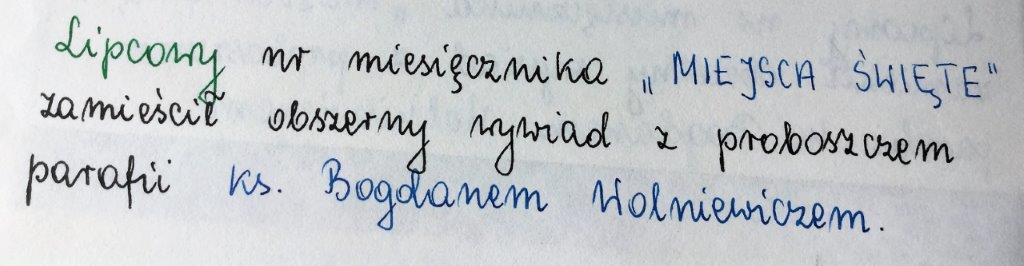 Lipcowy nr miesięcznika „MIEJSCA ŚWIĘTE"
zamieścił obszerny wywiad z proboszczem
parafii ks. Bogdanem Wolniewiczem.